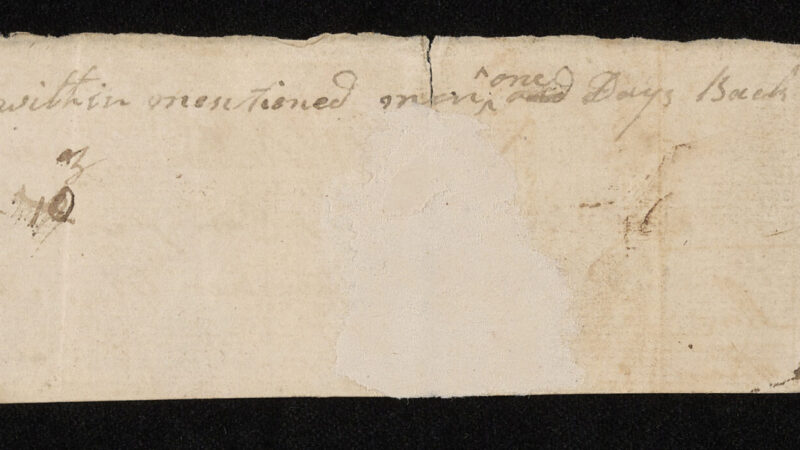 within mentioned men one Days Back